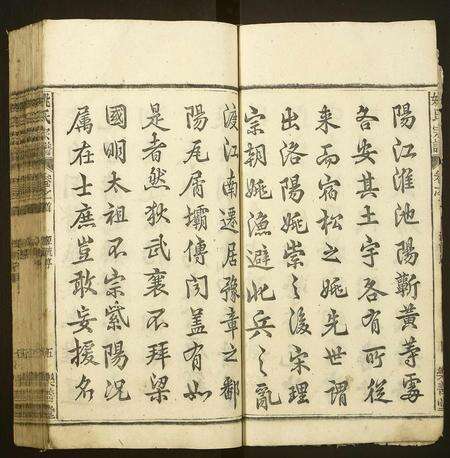 陽江淮池陽蘄黃等處
各安其土宇各有所從
來而宿松之姚先世謂
出洛陽姚崇之後宋理
宗朝姚漁避此兵之亂
渡江南遷居豫章之鄱
陽瓦屑壩傳聞蓋有如
是者然狄武襄不拜梁
國明太祖不宗紫陽況
属在士庶豈敢妄援名
姚氏宗譜